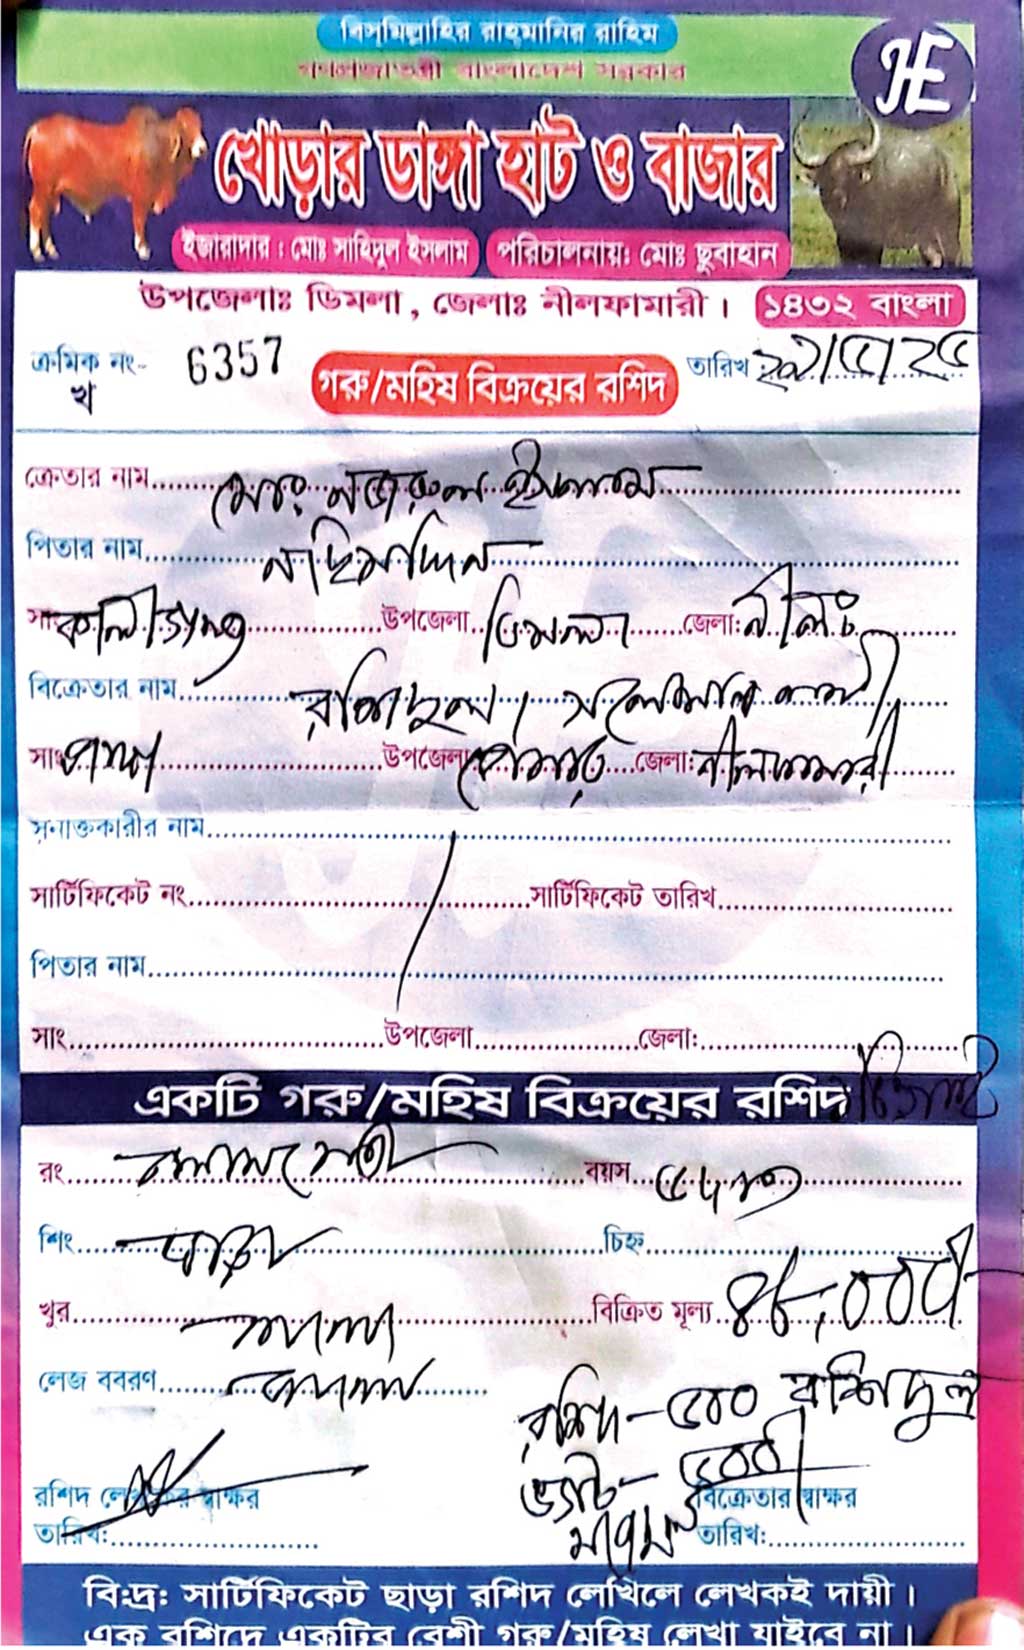 বিস্‌মিল্লাহির রাহ্‌মানির রাহিম
গণপ্রজাতন্ত্রী বাংলাদেশ সরকার
HE
খোড়ার ডাঙ্গা হাট ও বাজার
ইজারাদার : মোঃ সাহিদুল ইসলাম পরিচালনায়: মোঃ ছুবাহান
উপজেলাঃ ডিমলা, জেলাঃ নীলফামারী। ১৪৩২ বাংলা
ক্রমিক নং- 6357 তারিখ
খ
গরু/মহিষ বিক্রয়ের রশিদ
ক্রেতার নাম মোঃ নজরুল ইসলাম
পিতার নাম নছিমদ্দিন
সাং কালীগঞ্জ উপজেলা ডিমলা জেলা: নীলং
বিক্রেতার নাম রশিদুল।
সাং উপজেলা জেলা: নীলফামারী
সনাক্তকারীর নাম
সার্টিফিকেট নং সার্টিফিকেট তারিখ
পিতার নাম
সাং উপজেলা জেলা:
একটি গরু/মহিষ বিক্রয়ের রশিদ
রং বয়স
শিং চিহ্ন
খুর বিক্রিত মূল্য ৪৮,০০০/-
লেজ ববরণ
রশিদ-৫০০ রশিদুল
রশিদ লেখকের স্বাক্ষর বিক্রেতার স্বাক্ষর
তারিখ: তারিখ:
বি:দ্র: সার্টিফিকেট ছাড়া রশিদ লেখিলে লেখকই দায়ী।
এক রশিদে একটির বেশী গরু/মহিষ লেখা যাইবে না।